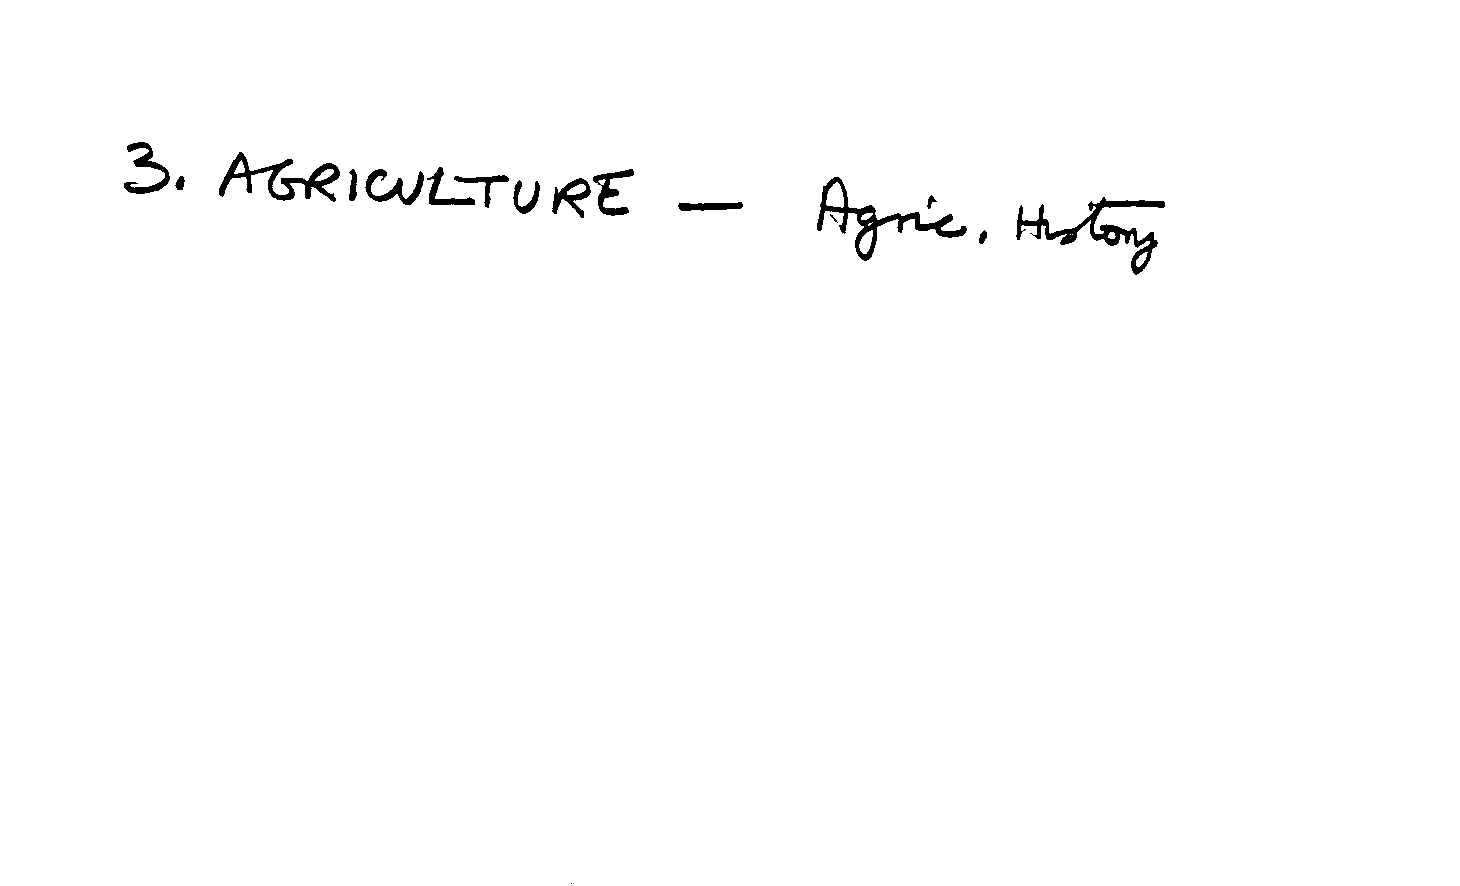 3. AGRICULTURE — Agric. History